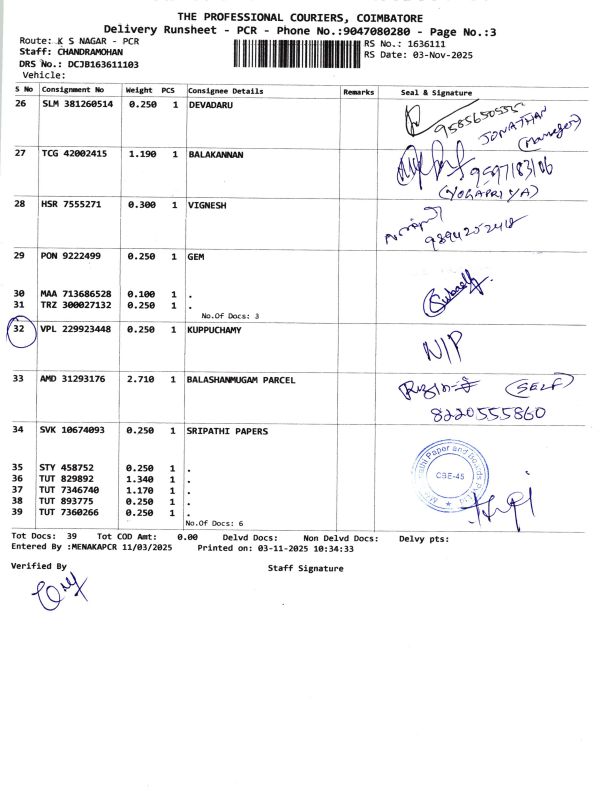 THE PROFESSIONAL COURIERS, COIMBATORE
Delivery Runsheet - PCR - Phone No.:9047080280 - Page No.:3
Route: K S NAGAR - PCR
RS No.: 1636111
Staff: CHANDRAMOHAN
RS Date: 03-Nov-2025
DRS No.: DCJB163611103
Vehicle:
S No Consignment No Weight PCS Consignee Details Remarks Seal & Signature
26 SLM 381260514 0.250 1 DEVADARU
JONATHAN
(Manager)
27 TCG 42002415 1.190 1 BALAKANNAN
9597183106
(YOGAPRIYA)
28 HSR 7555271 0.300 1 VIGNESH
9894252418
29 PON 9222499 0.250 1 GEM
30 MAA 713686528 0.100 1 .
31 TRZ 300027132 0.250 1 .
No.Of Docs: 3
32 VPL 229923448 0.250 1 KUPPUCHAMY
N/P
33 AMD 31293176 2.710 1 BALASHANMUGAM PARCEL
(SELF)
8220555860
34 SVK 10674093 0.250 1 SRIPATHI PAPERS
35 STY 458752 0.250 1 .
36 TUT 829892 1.340 1 .
37 TUT 7346740 1.170 1 .
38 TUT 893775 0.250 1 .
39 TUT 7360266 0.250 1 .
No.Of Docs: 6
Paper and Boards
CBE-45
Tot Docs: 39 Tot COD Amt: 0.00 Delvd Docs: Non Delvd Docs: Delvy pts:
Entered By :MENAKAPCR 11/03/2025 Printed on: 03-11-2025 10:34:33
Verified By
Staff Signature